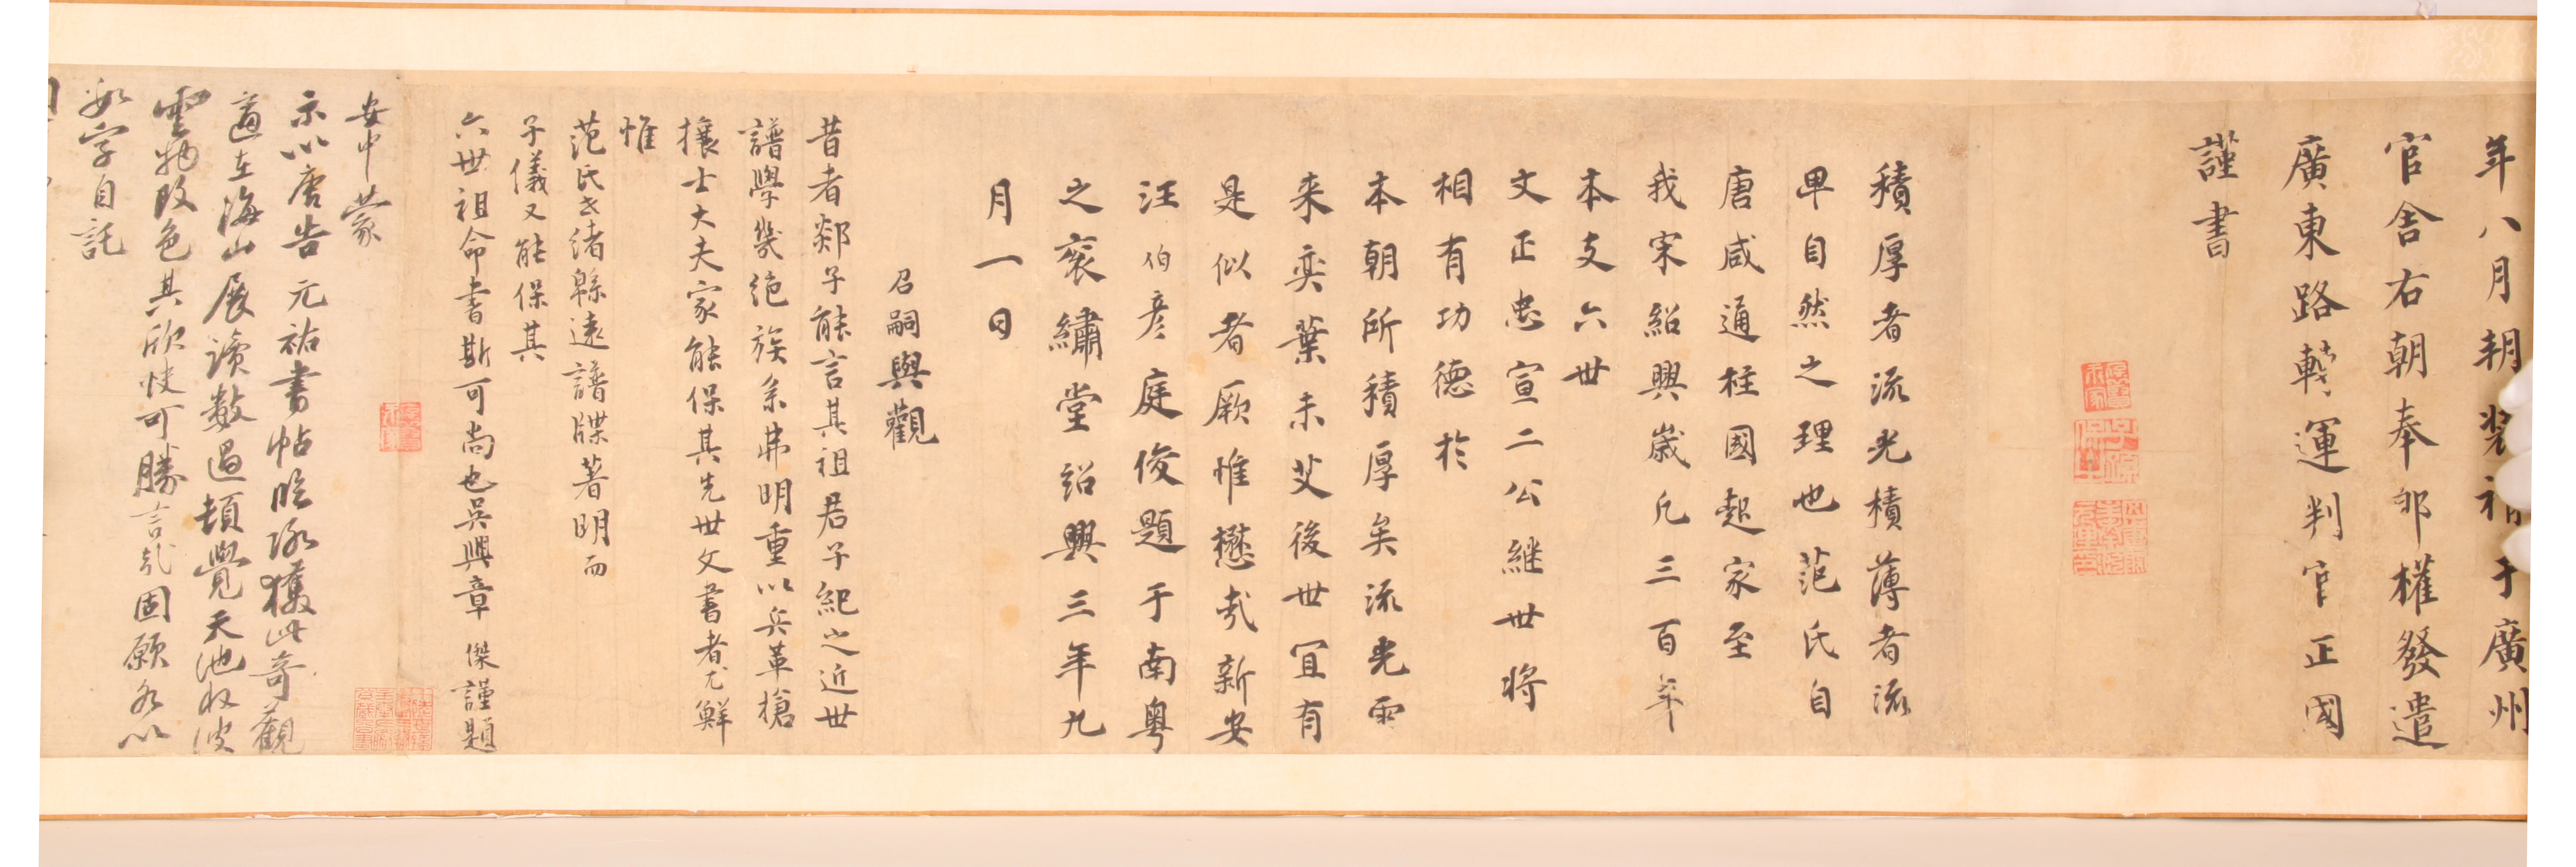 年八月朝裝褙于廣州
官舍右朝奉郎權發遣
廣東路轉運判官正國
謹書
積厚者流光積薄者流
卑自然之理也范氏自
唐咸通柱國起家至
我宋紹興歲凡三百年
本支六世
文正忠宣二公繼世將
相有功德於
本朝所積厚矣流光而
来奕葉未艾後世宜有
是似者厥惟懋哉新安
汪伯彥庭俊題于南粤
之袞繡堂紹興三年九
月一日
召嗣興觀
昔者郯子能言其祖君子紀之近世
譜學幾絶族系弗明重以兵革搶
攘士大夫家能保其先世文書者尤鮮
惟
范氏緒緜遠譜牒著明而
子儀又能保其
六世祖命書斯可尚也吳興章傑謹題
安中蒙
示以唐告元祐書帖臨狖獲此奇觀
適在海山展讀數過頓覺天池收波
雲物改色其欣快可勝言哉固願名以
字自託